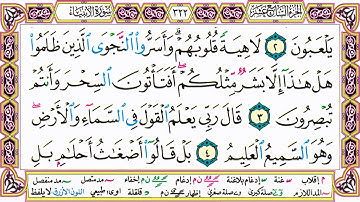 الجزء السابع عشر ٣٢٢ سورة الأنبياء
يَلْعَبُونَ ٢ لَاهِيَةً قُلُوبُهُمْ ۗ وَأَسَرُّوا۟ ٱلنَّجْوَى ٱلَّذِينَ ظَلَمُوا۟
هَلْ هَٰذَآ إِلَّا بَشَرٌ مِّثْلُكُمْ ۖ أَفَتَأْتُونَ ٱلسِّحْرَ وَأَنتُمْ
تُبْصِرُونَ ٣ قَالَ رَبِّى يَعْلَمُ ٱلْقَوْلَ فِى ٱلسَّمَآءِ وَٱلْأَرْضِ ۖ
وَهُوَ ٱلسَّمِيعُ ٱلْعَلِيمُ ٤ بَلْ قَالُوٓا۟ أَضْغَٰثُ أَحْلَٰمٍۭ بَلِ